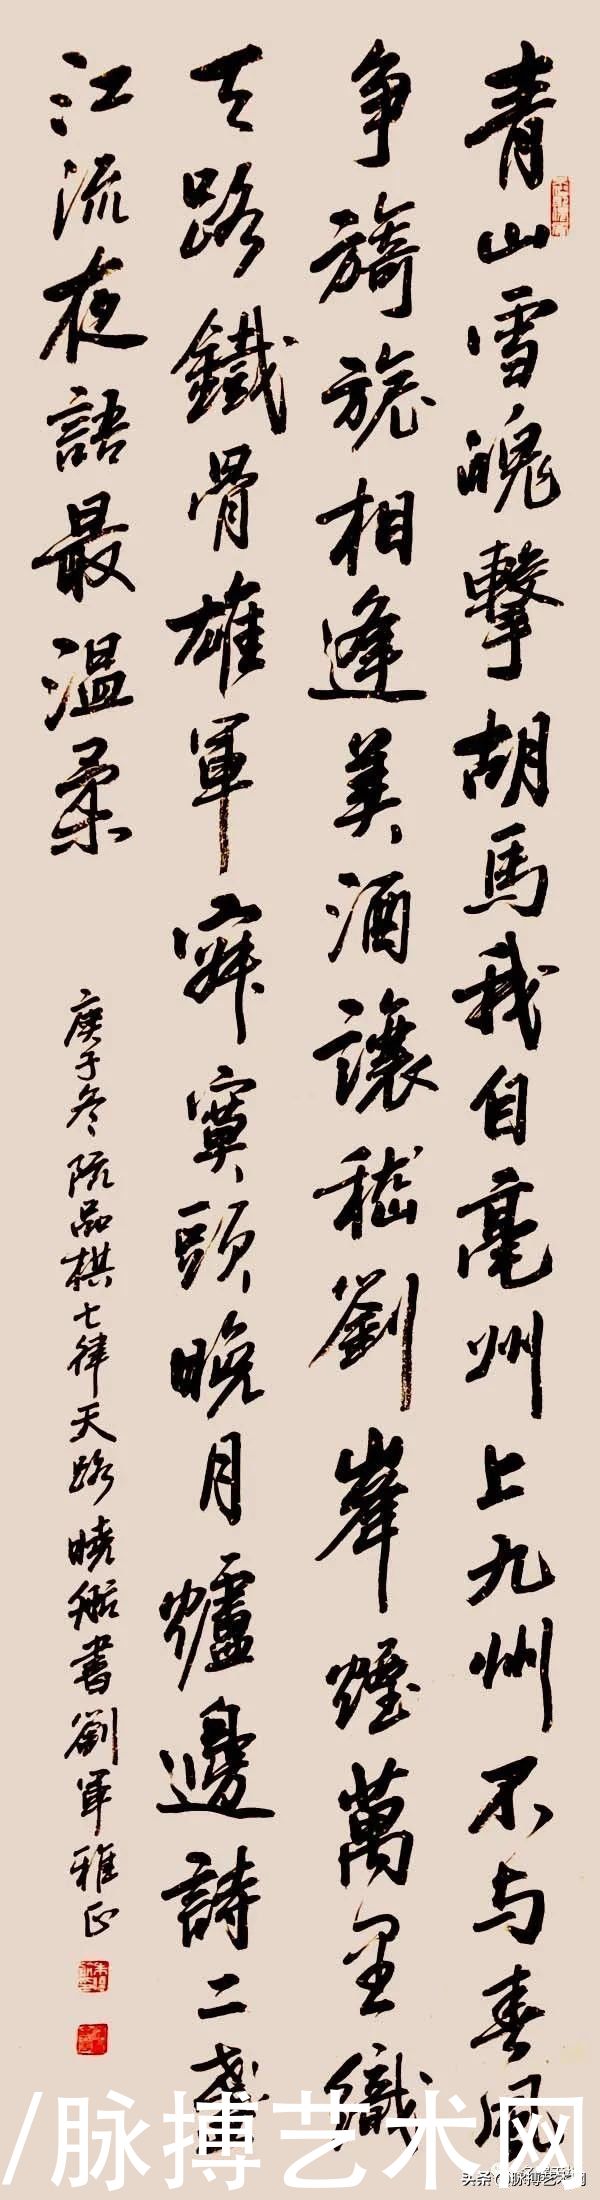 青山雪魄擊胡馬我自亳州上九州不与春風
争旖旎相逢美酒讓嵇劉峯煙萬里織
天路鐵骨雄軍寂寞頭晚月爐邊詩二盞
江流夜語最溫柔
庚子冬阮品棋七律天路曉船書劉軍雅正
/脉搏艺术网
头条@脉搏艺术网